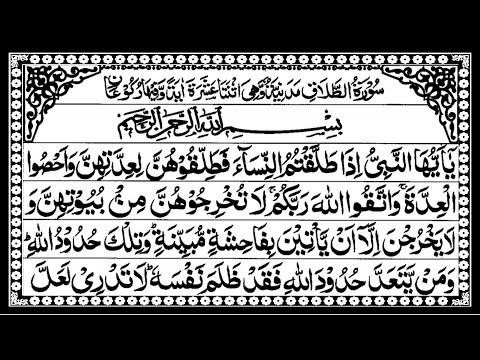 سُوْرَةُ الطَّلَاقِ مَدَنِيَّةٌ وَّهِيَ اثْنَتَا عَشْرَةَ اٰيَةً وَّفِيْهَا رُكُوْعَانِ
بِسْمِ اللّٰهِ الرَّحْمٰنِ الرَّحِيْمِ
يٰۤاَيُّهَا النَّبِيُّ اِذَا طَلَّقْتُمُ النِّسَآءَ فَطَلِّقُوْهُنَّ لِعِدَّتِهِنَّ وَاَحْصُوا
الْعِدَّةَ ۚ وَاتَّقُوا اللّٰهَ رَبَّكُمْ ۚ لَا تُخْرِجُوْهُنَّ مِنْۢ بُيُوْتِهِنَّ وَ
لَا يَخْرُجْنَ اِلَّاۤ اَنْ يَّاْتِيْنَ بِفَاحِشَةٍ مُّبَيِّنَةٍ ؕ وَتِلْكَ حُدُوْدُ اللّٰهِ ؕ
وَمَنْ يَّتَعَدَّ حُدُوْدَ اللّٰهِ فَقَدْ ظَلَمَ نَفْسَهٗ ؕ لَا تَدْرِيْ لَعَلَّ